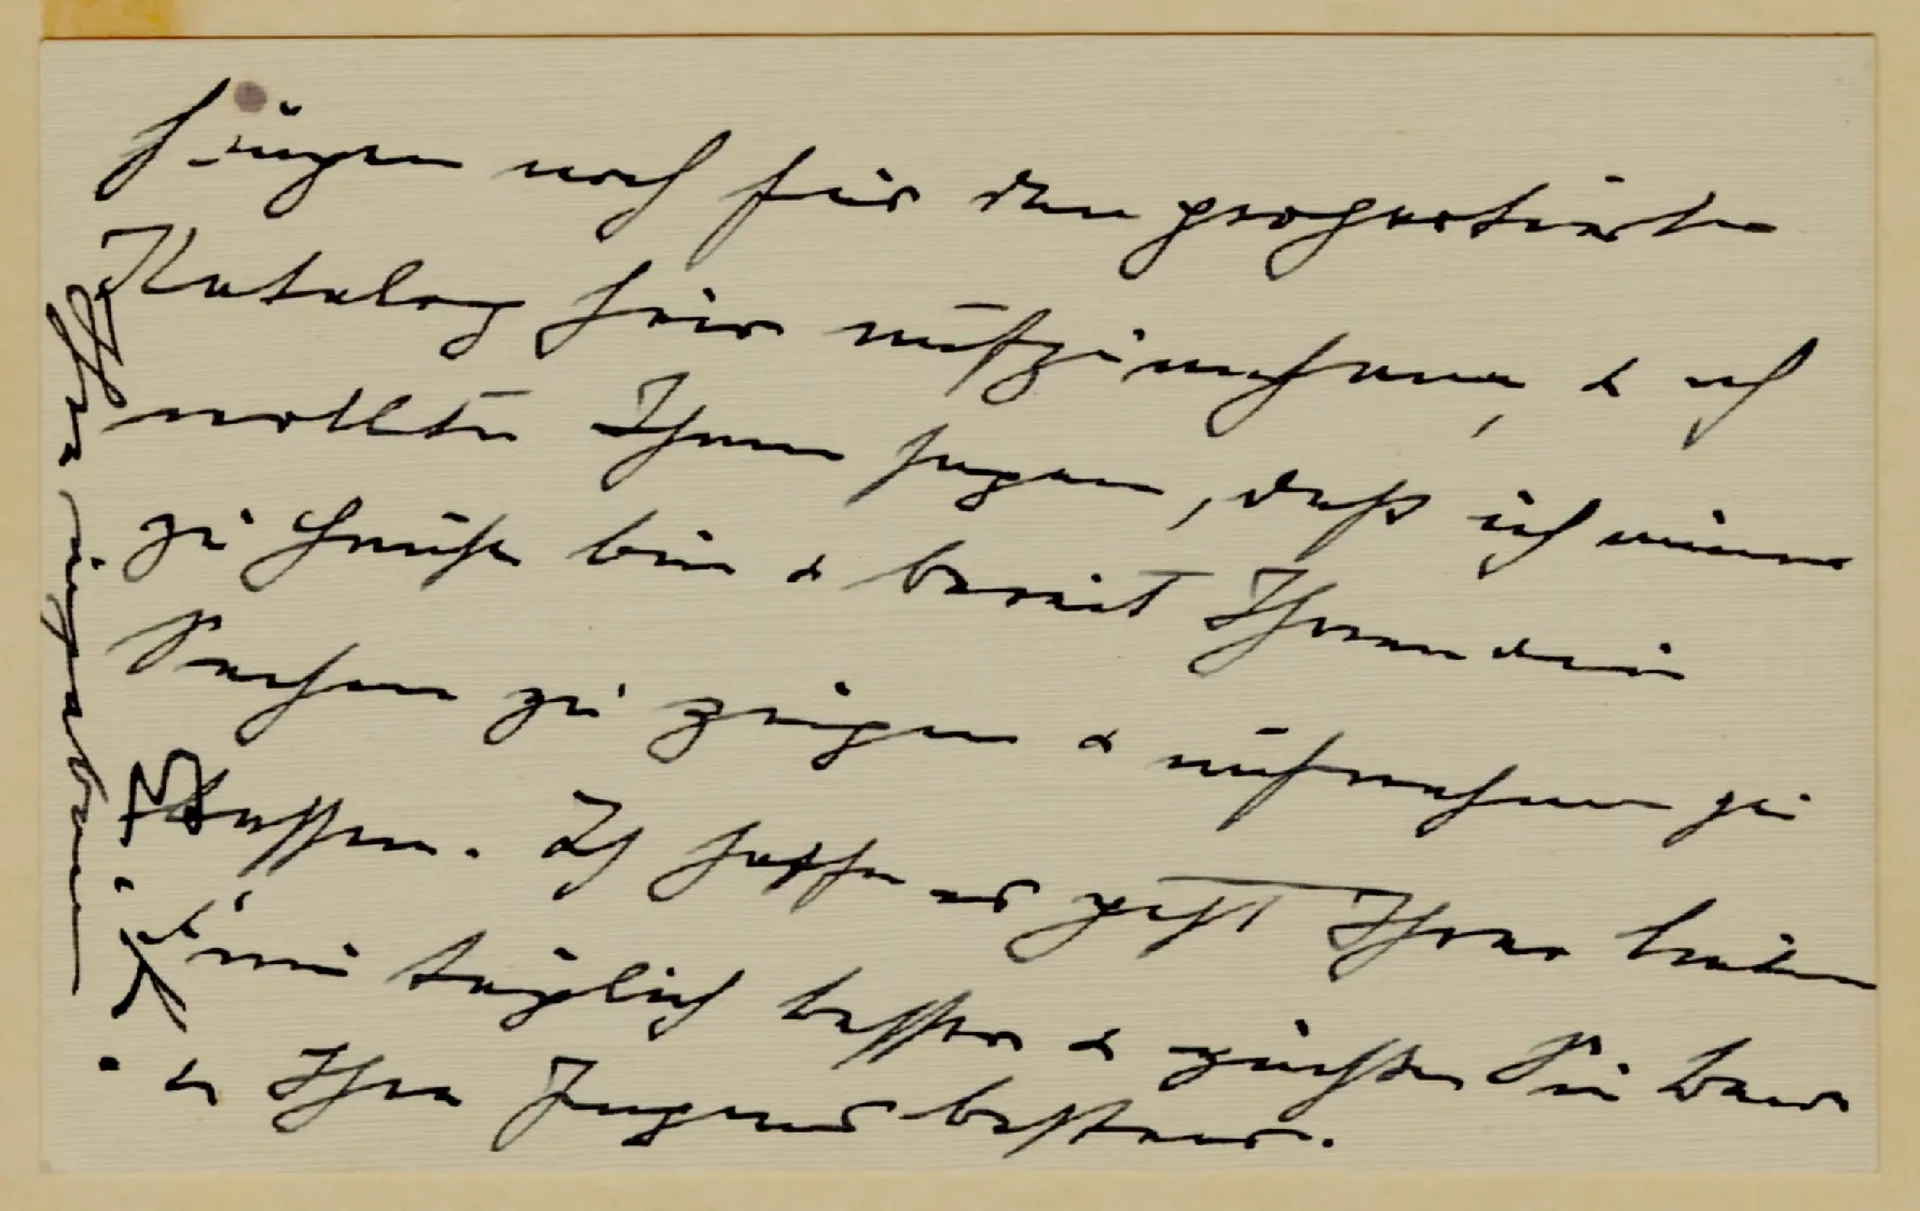 hängen noch für den projectirten
Katalog hier aufzunehmen, & ich
wollte Ihnen sagen, daß ich immer
zu Hause bin & bereit Ihnen die
Sachen zu zeigen & aufnehmen zu
lassen. Ich hoffe es geht Ihrer lieben
täglich besser & grüße Sie
& Ihre Jugend bestens.
Ihr ergebener